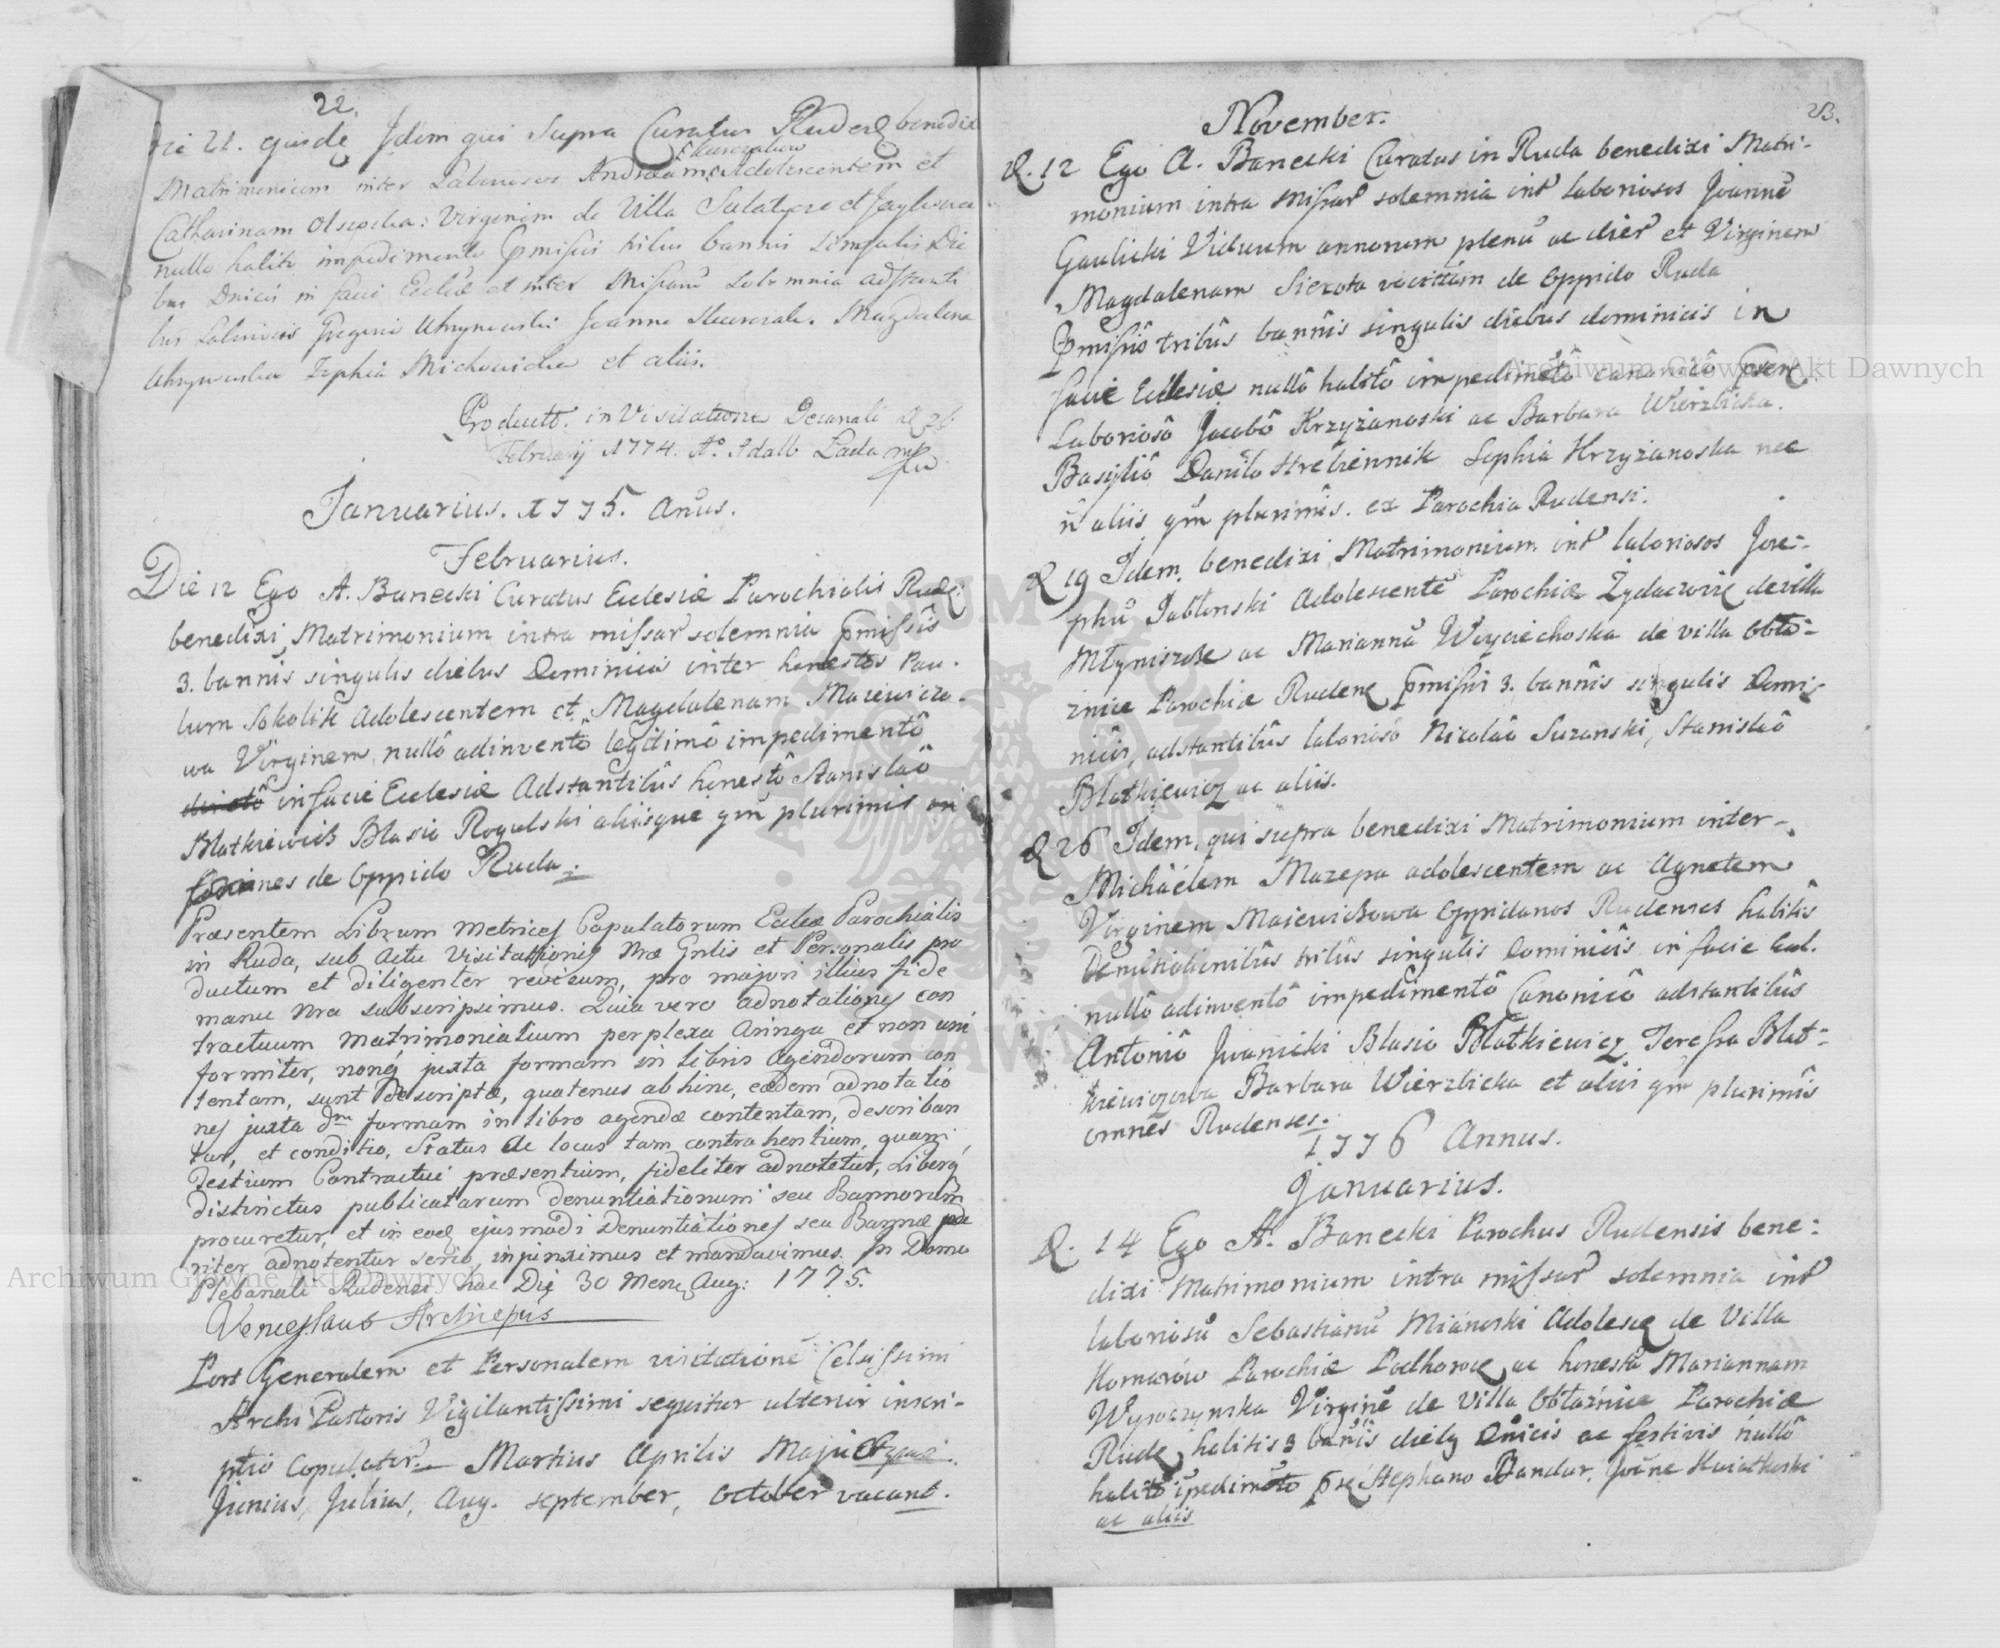 22.
Die 21. ejusdę Idem qui Supra Curatus Rudeń benedixi
Matrimonium inter Laboriosos Andream Adolescentem et
Catharinam Virginem de Villa et
nullo habito impedimento pmissis tribus bannis singulis Die
bus Dnicis in facie Eccliæ et inter Missarū Solemnia adstanti
bus Laboriosis Gregorio Uhrynowski Joanne Magdalena
Uhrynowska Zophia Michowicka et aliis.
Product: in Visitatione Decanali D. 26
Februarij 1774. Aº Adalb Lada mpp
Januarius. 1775. Anūs.
Februarius.
Die 12 Ego A. Banecki Curatus Ecclesiæ Parochialis Rudę:
benedixi Matrimonium intra missar solemnia pmissis
3. bannis singulis diebus Dominicis inter honestos Pau-
lum Sokolik Adolescentem et Magdalenam Maiewiczo-
wa Virginem, nullô adinventô legitimô impedimentô
in facie Ecclesiæ Adstantibûs honestô Stanislaô
Blatkiewicz Blasio Rogulski aliisque qm plurimis
omnes de Oppido Ruda.
Præsentem Librum Metrices Copulatorum Eccliæ Parochialis
in Ruda, sub Actu Visitationis Nræ Gnlis et Personalis pro
ductum et diligenter revisum, pro majori illius fide
manu Nra subscripsimus. Quia vero adnotationes con
tractuum matrimonialium perplexa aringa et non uni
formiter, nonq juxta formam in libris Agendorum con
tentam, sunt descriptæ, quatenus ab hinc, eædem adnotatio
nes juxta dm formam in libro agendæ contentam, describan
tur, et conditio, Status ac locus tam contrahentium, quam
Testium Contractui præsentium, fideliter adnotetur, Liberq
distinctus publicatarum denuntiationum seu Bannorum
procuretur, et in eoq ejusmodi Denuntiationes seu Bannæ pa
riter adnotentur serio injunximus et mandavimus. In Domo
Plebanali Rudensi hac Die 30 Mens Aug: 1775.
Venceslaus Archiepus
Post Generalem et Personalem visitationē Celsissimi
Archi Pastoris Vigilantissimi sequitur ulterior inscri-
ptio Copulator. Martius Aprilis Majus
Junius, Julius, Aug. september, October vacant.
23.
November.
D. 12 Ego A. Banecki Curatus in Ruda benedixi Matri-
monium intra Missar solemnia int laboriosos Joannē
Gaulicki Viduum annorum plenū ac dier et Virginem
Magdalenam Sierota vocitatam de Oppido Ruda
Pmissis tribûs bannis singulis diebus dominicis in
facie Ecclesiæ nullô habitô impedimētô canonicô
Laboriosô Jacobô Krzyżanoski ac Barbara Wierzbicka.
Basyliô Daniło Hrebiennik Sophia Krzyżanoska nec
ñ aliis qm plurimis. ex Parochia Rudensi.
D 19 Idem benedixi Matrimonium int laboriosos Jose-
phū Jabłonski Adolescentē Parochiæ Żydaczowię de villa
Młyniszcze ac Mariannā Woyciechoska de villa Obła-
znica Parochiæ Rudenę pmissis 3. bannis singulis Domi-
nicis, adstantibûs laboriosô Nicolaô Suzanski, Stanislaô
Blatkiewicz ac aliis.
D 26 Idem, qui supra benedixi Matrimonium inter-
Michäelem Mazepa adolescentem ac Agnetem
Virginem Maiewiczowa Oppidanos Rudenses habitis
Denuntiationibûs tribûs singulis Dominicis in facie Eccl.
nullô adinventô impedimentô Canonicô adstantibûs
Antoniô Iwanicki Blasio Blatkiewicz Teressa Blat-
kiewiczowa Barbara Wierzbicka et aliis qm plurimis
omnēs Rudenses.
1776 Annus.
Januarius.
D. 14 Ego A. Banecki Parochus Rudensis bene:
dixi Matrimonium intra missar solemnia int
laboriosū Sebastianū Mianoski Adolesce de Villa
Komarów Parochiæ Podhoroc ac honestā Mariannam
Wysoczynska Virginē de Villa Obłaźnica Parochiæ
Rudę habitis 3 banis dieb Dnicis ac festivis nullô
habitô ipedimēto Stephano Bandur, Joāne Kwiatkoski
ac aliis
Archiwum Główne Akt Dawnych
Archiwum Główne Akt Dawnych